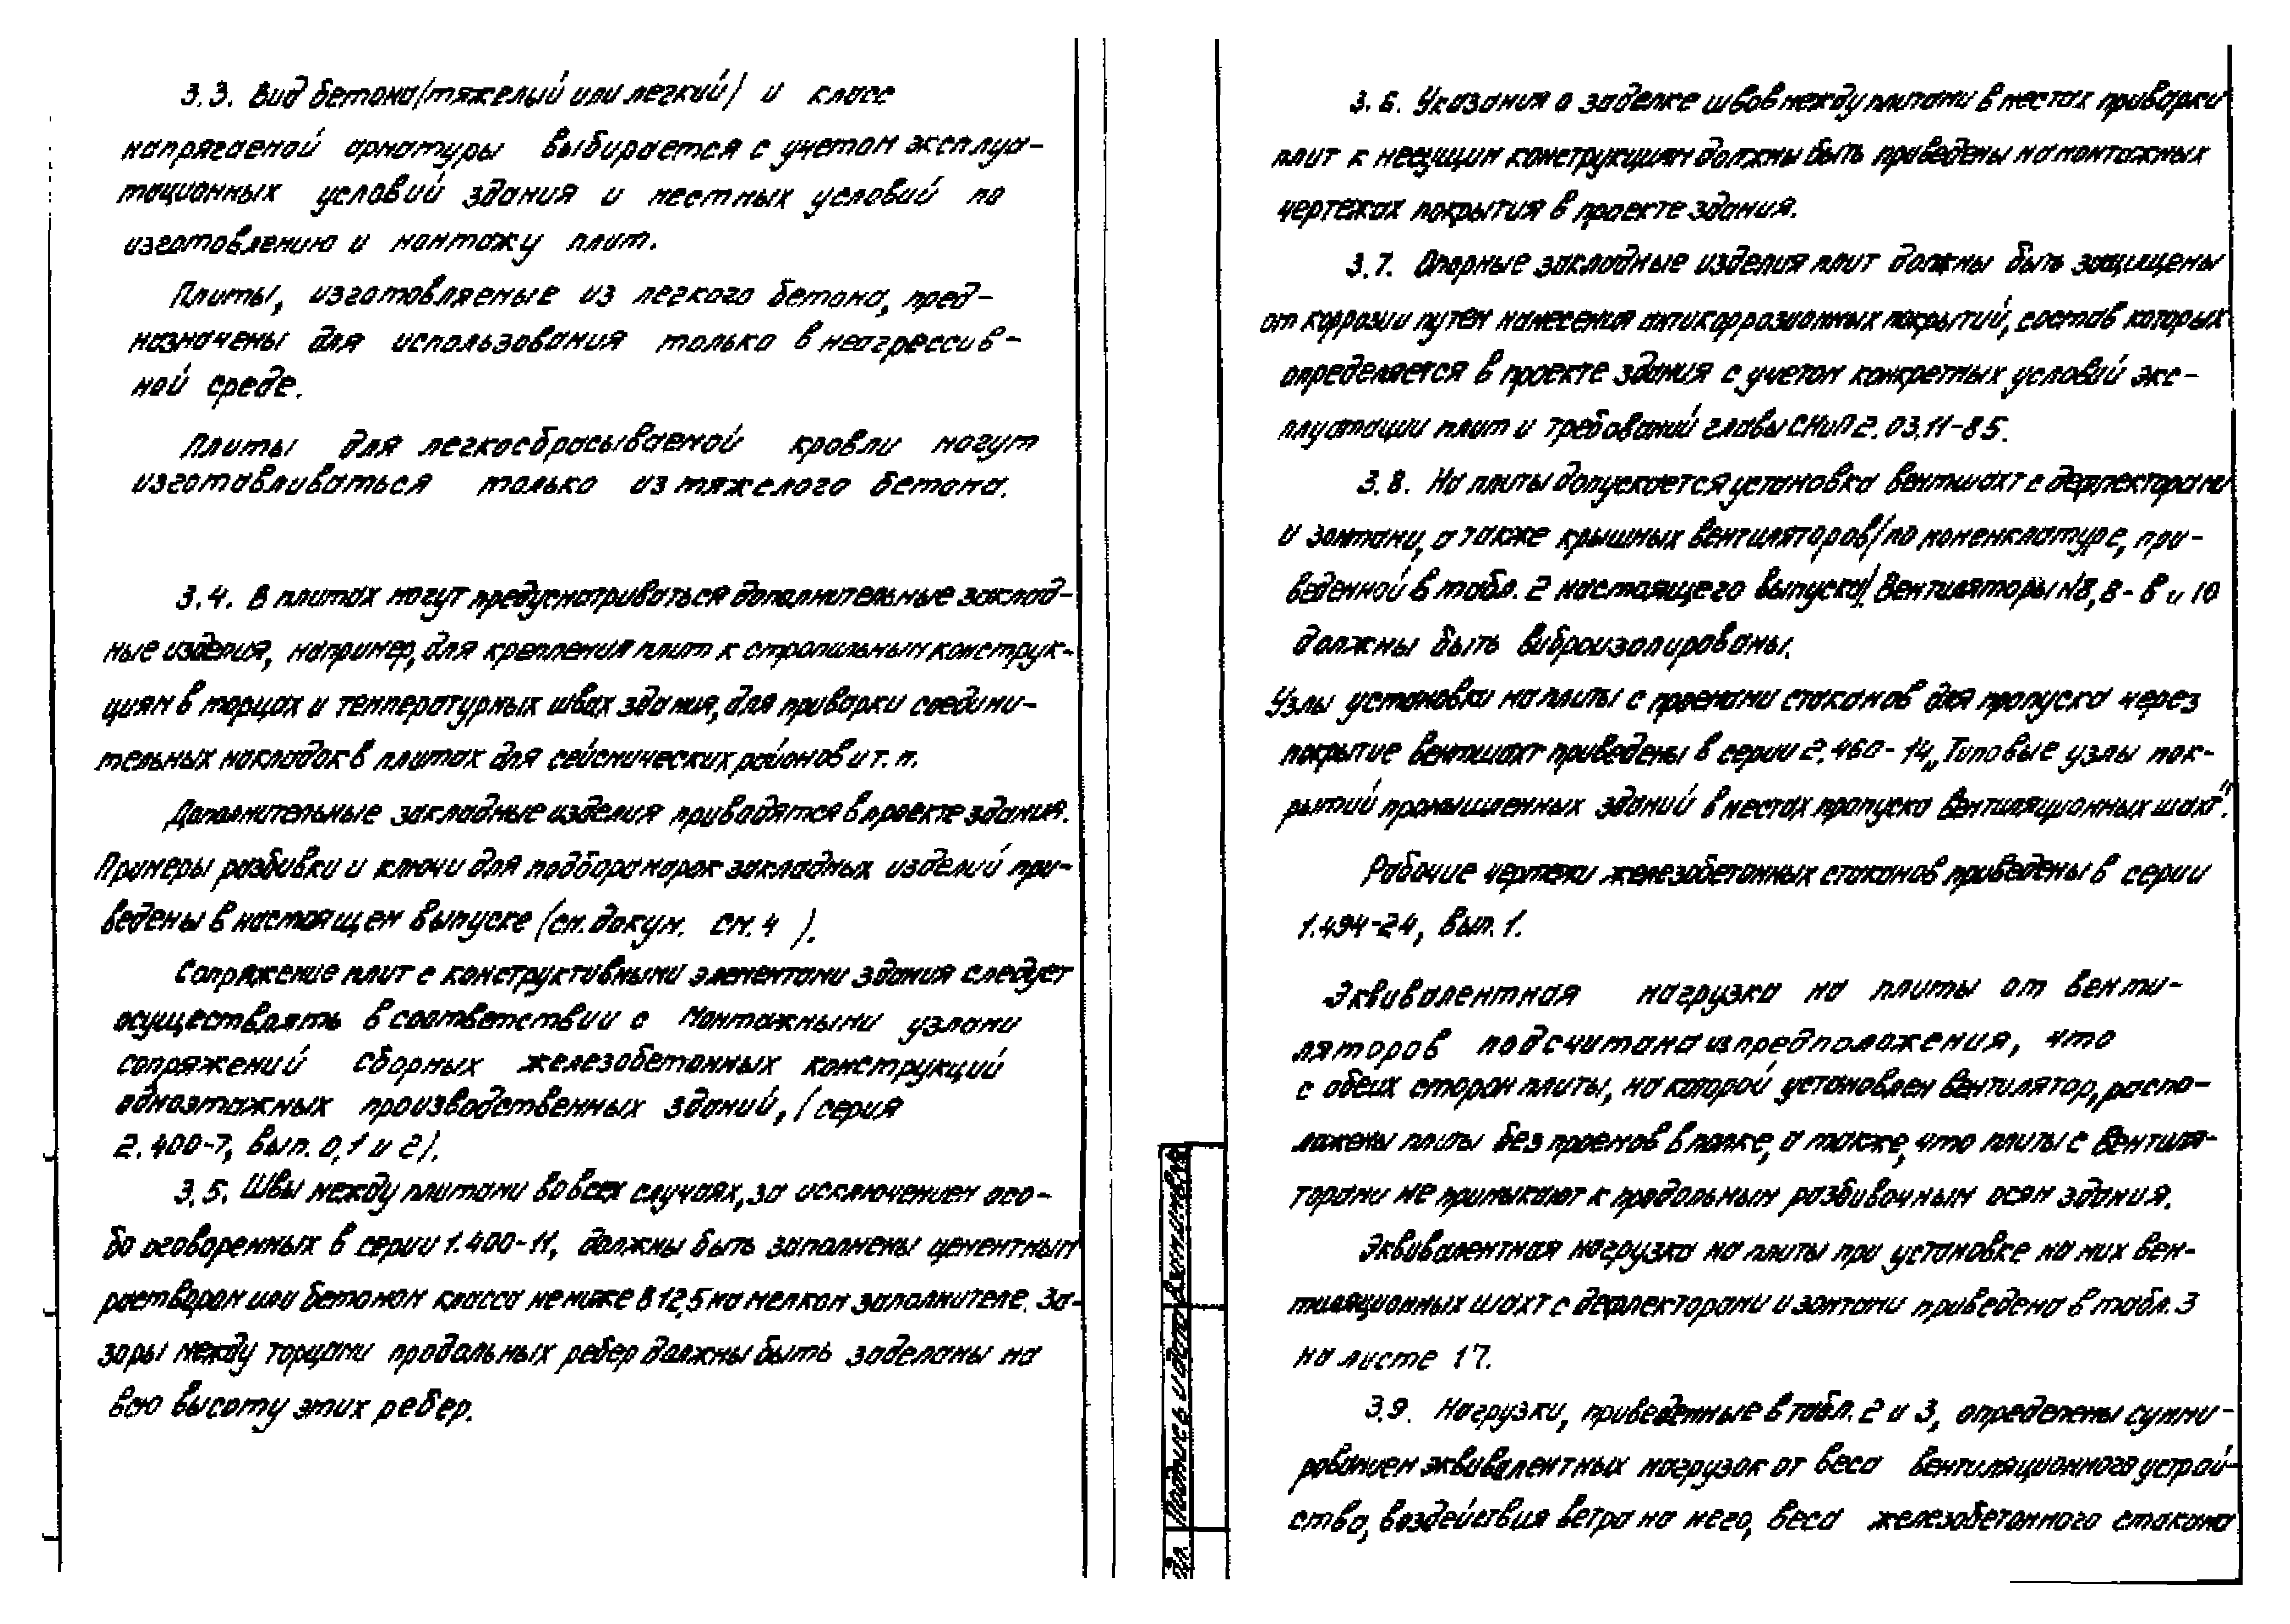 3.3. Вид бетона (тяжелый или легкий) и класс
напрягаемой арматуры выбирается с учетом эксплуа-
тационных условий здания и местных условий по
изготовлению и монтажу плит.
Плиты, изготовляемые из легкого бетона, пред-
назначены для использования только в неагрессив-
ной среде.
Плиты для легкосбрасываемой кровли могут
изготавливаться только из тяжелого бетона.
3.4. В плитах могут предусматриваться дополнительные заклад-
ные изделия, например, для крепления плит к стропильным конструк-
циям в торцах и температурных швах здания, для приварки соедини-
тельных накладок в плитах для сейсмических районов и т. п.
Дополнительные закладные изделия приводятся в проекте здания.
Примеры разбивки и ключи для подбора марок закладных изделий при-
ведены в настоящем выпуске (см. докум. см. 4 ).
Сопряжение плит с конструктивными элементами здания следует
осуществлять в соответствии с Монтажными узлами
сопряжений сборных железобетонных конструкций
одноэтажных производственных зданий, (серия
2.400-7, вып. 0,1 и 2).
3.5. Швы между плитами во всех случаях, за исключением осо-
бо оговоренных в серии 1.400-11, должны быть заполнены цементным
раствором или бетоном класса не ниже В 12,5 на мелком заполнителе. За-
зоры между торцами продольных ребер должны быть заделаны на
всю высоту этих ребер.
3.6. Указания о заделке швов между плитами в местах приварки
плит к несущим конструкциям должны быть приведены на монтажных
чертежах покрытия в проекте здания.
3.7. Опорные закладные изделия плит должны быть защищены
от коррозии путем нанесения антикоррозионных покрытий, состав которых
определяется в проекте здания с учетом конкретных условий экс-
плуатации плит и требований главы СНиП 2.03.11-85.
3.8. На плиты допускается установка вентшахт с дефлекторами
и зонтами, а также крышных вентиляторов (по номенклатуре, при-
веденной в табл. 2 настоящего выпуска). Вентиляторы N8, 8-в и 10
должны быть виброизолированы.
Узлы установки на плиты с проемами стаканов для пропуска через
покрытие вентшахт приведены в серии 2.460-14 „Типовые узлы пок-
рытий промышленных зданий в местах пропуска вентиляционных шахт".
Рабочие чертежи железобетонных стаканов приведены в серии
1.494-24, вып. 1.
Эквивалентная нагрузка на плиты от венти-
ляторов подсчитана из предположения, что
с обеих сторон плиты, на которой установлен вентилятор, распо-
ложены плиты без проемов в полке, а также, что плиты с вентиля-
торами не примыкают к продольным разбивочным осям здания.
Эквивалентная нагрузка на плиты при установке на них вен-
тиляционных шахт с дефлекторами и зонтами приведена в табл. 3
на листе 17.
3.9. Нагрузки, приведенные в табл. 2 и 3, определены сумми-
рованием эквивалентных нагрузок от веса вентиляционного устрой-
ства, воздействия ветра на него, веса железобетонного стакана
Подпись и дата